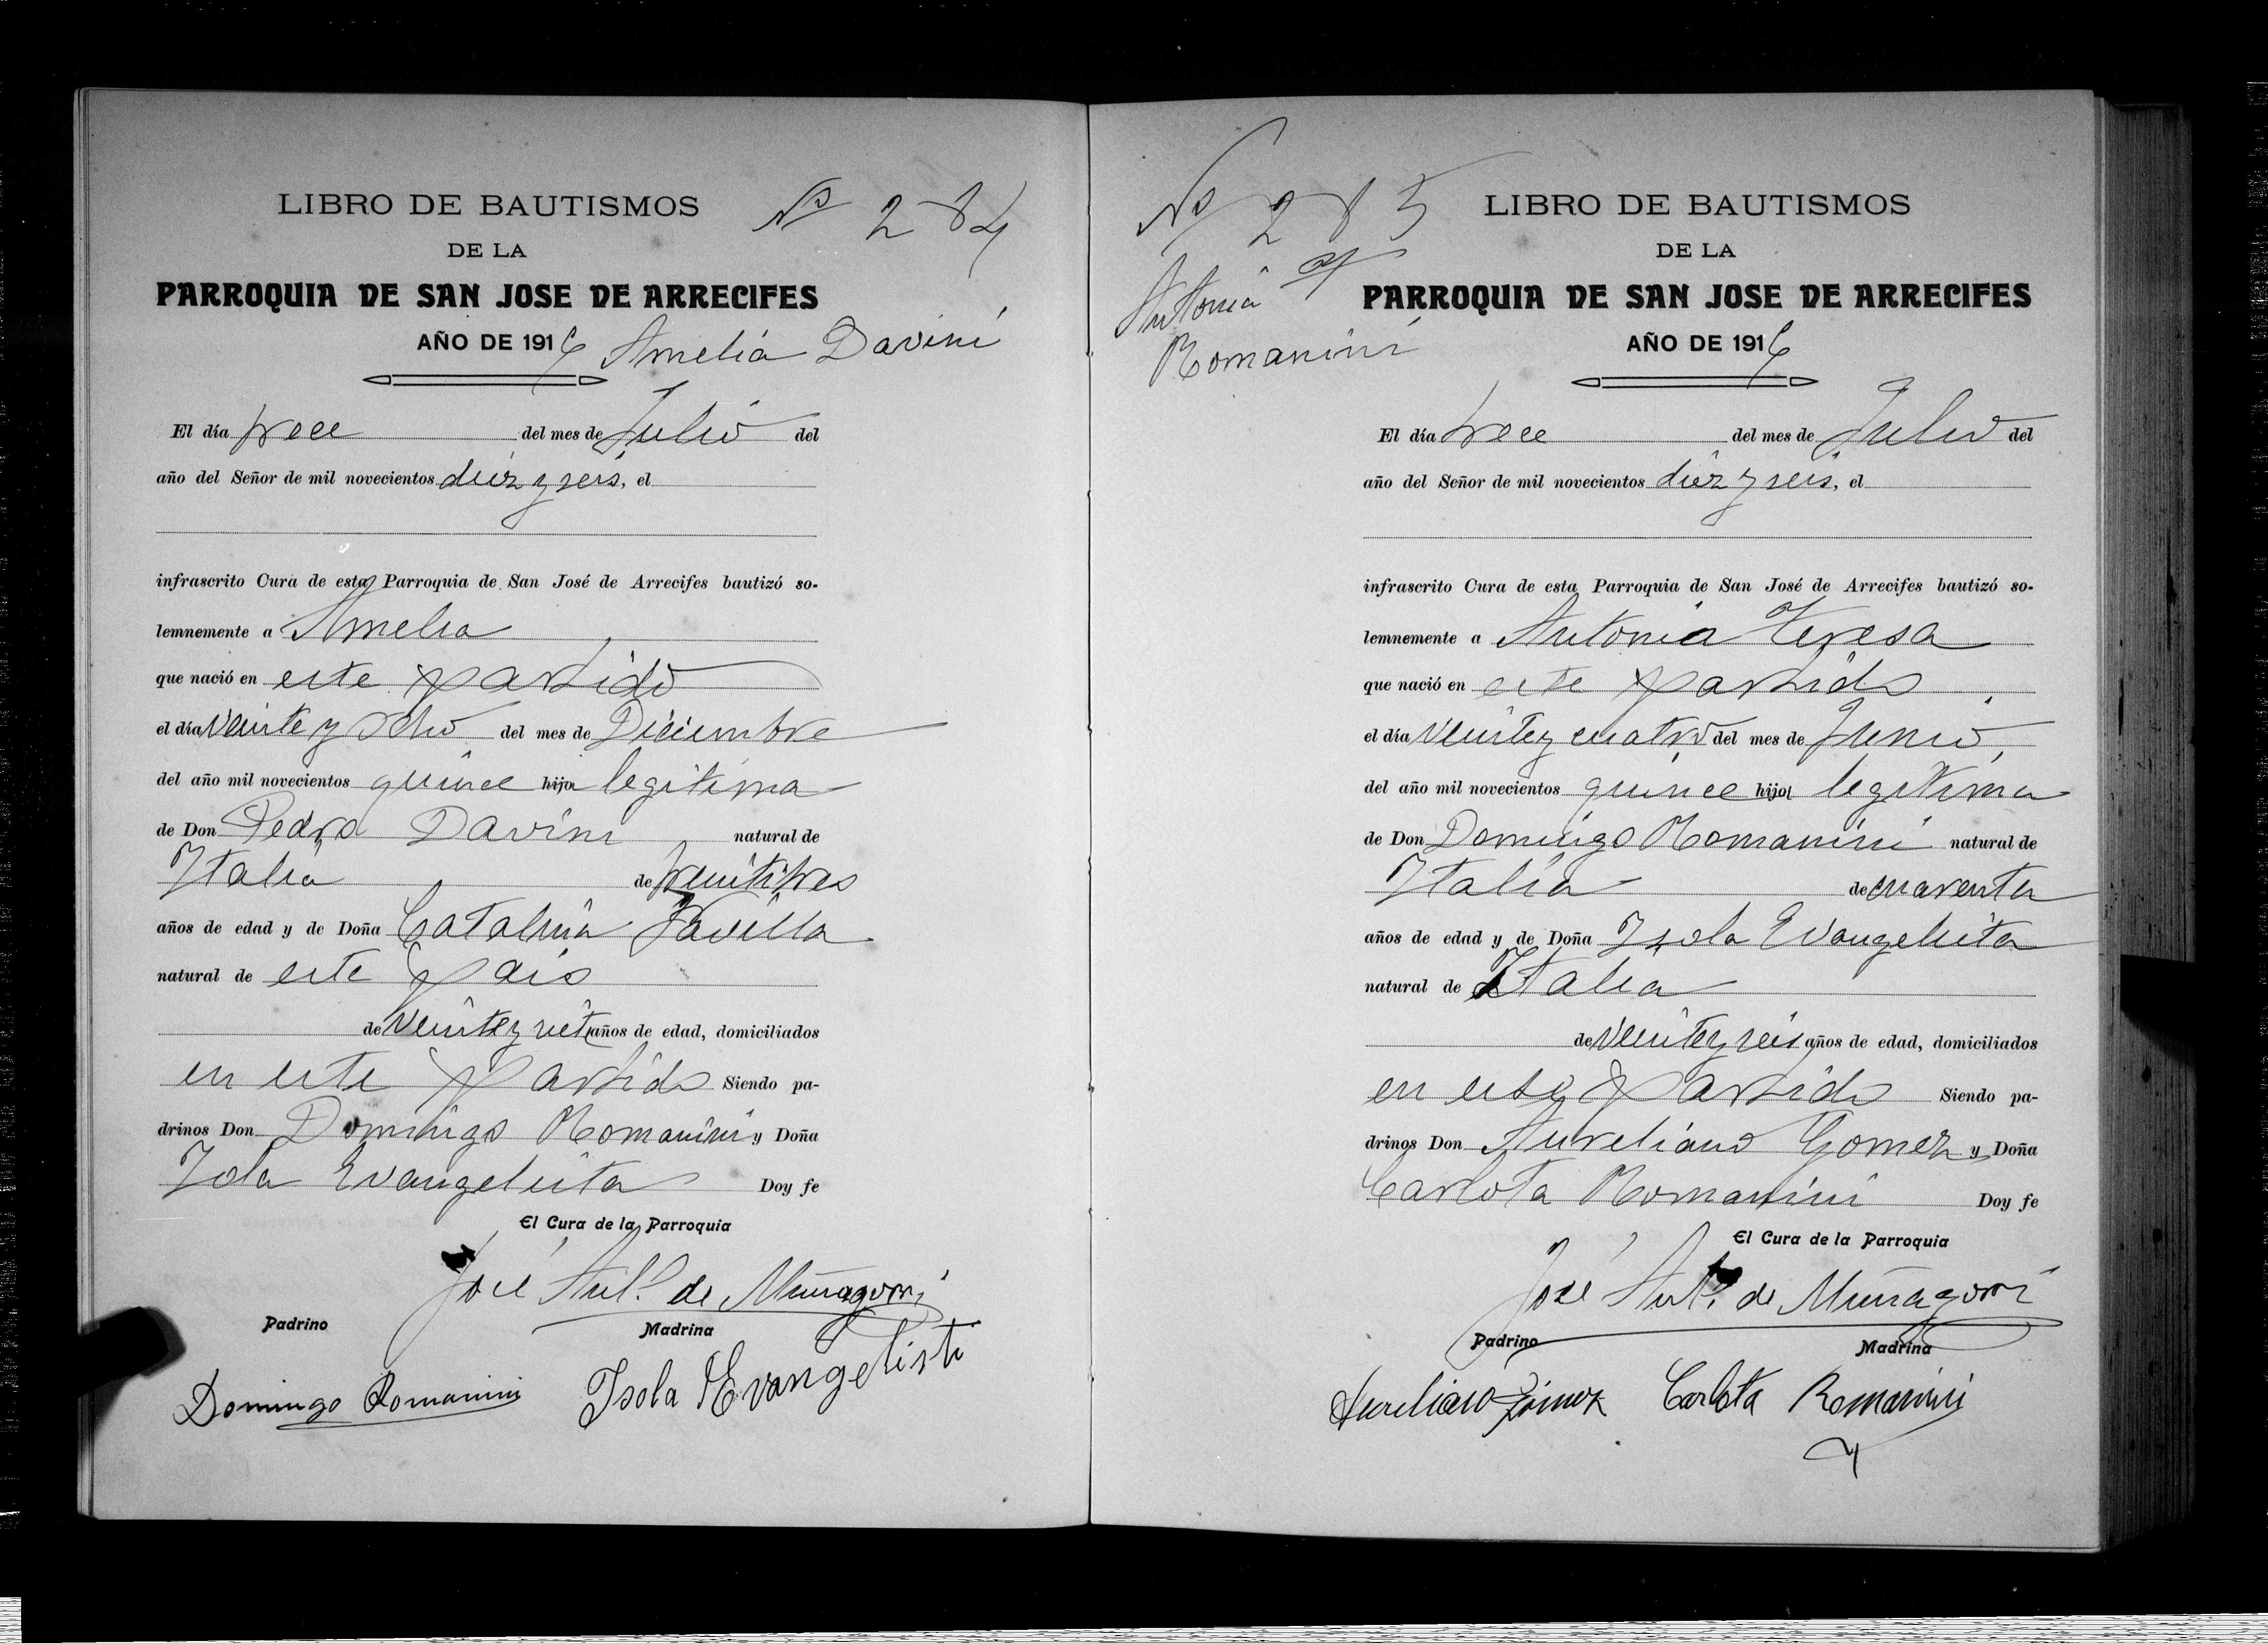 LIBRO DE BAUTISMOS Nº 284
DE LA
PARROQUIA DE SAN JOSE DE ARRECIFES
AÑO DE 1916 Amelia Davini
El día trece del mes de Julio del
año del Señor de mil novecientos diez y seis, el
infrascrito Cura de esta Parroquia de San José de Arrecifes bautizó so-
lemnemente a Amelia
que nació en este partido
el día veinte y ocho del mes de Diciembre
del año mil novecientos quince hija legitima
de Don Pedro Davini natural de
Italia de
años de edad y de Doña Catalina Favilla
natural de este pais
de veinte y siete años de edad, domiciliados
en este partido Siendo pa-
drinos Don Domingo Romanini y Doña
Isola Evangelista Doy fe
El Cura de la Parroquia
José Ant.º de Munagorri
Padrino Madrina
Domingo Romanini Isola Evangelisti
Nº 285
Antonia T
Romanini
LIBRO DE BAUTISMOS
DE LA
PARROQUIA DE SAN JOSE DE ARRECIFES
AÑO DE 1916
El día trece del mes de Julio del
año del Señor de mil novecientos diez y seis, el
infrascrito Cura de esta Parroquia de San José de Arrecifes bautizó so-
lemnemente a Antonia Teresa
que nació en este partido
el día veinte y cuatro del mes de Junio
del año mil novecientos quince hija legitima
de Don Domingo Romanini natural de
Italia de cuarenta
años de edad y de Doña Isola Evangelista
natural de Italia
de veinte y seis años de edad, domiciliados
en este partido Siendo pa-
drinos Don Aureliano Gomez y Doña
Carlota Romanini Doy fe
El Cura de la Parroquia
José Ant.º de Munagorri
Padrino Madrina
Aureliano Gómez Carlota Romanini